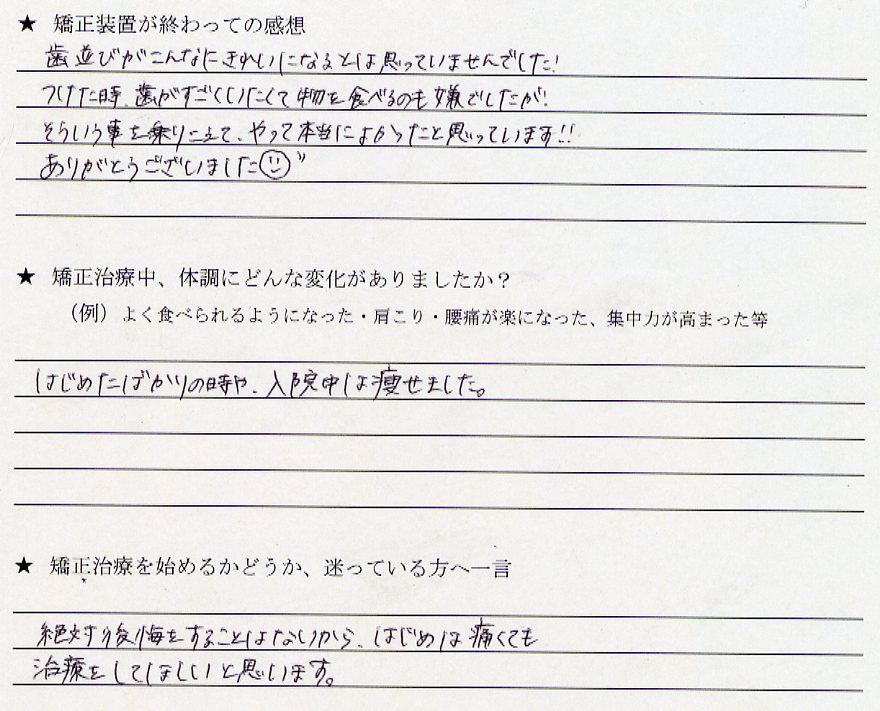 ★ 矯正装置が終わっての感想
歯並びがこんなにきれいになるとは思っていませんでした!
つけた時、歯がすごくいたくて物を食べるのも嫌でしたが!
そういう事を乗りこえて、やって本当によかったと思っています!!
ありがとうございました☺”
★ 矯正治療中、体調にどんな変化がありましたか?
（例）よく食べられるようになった・肩こり・腰痛が楽になった、集中力が高まった等
はじめたばかりの時や、入院中は痩せました。
★ 矯正治療を始めるかどうか、迷っている方へ一言
絶対後悔をすることはないから、はじめは痛くても
治療をしてほしいと思います。